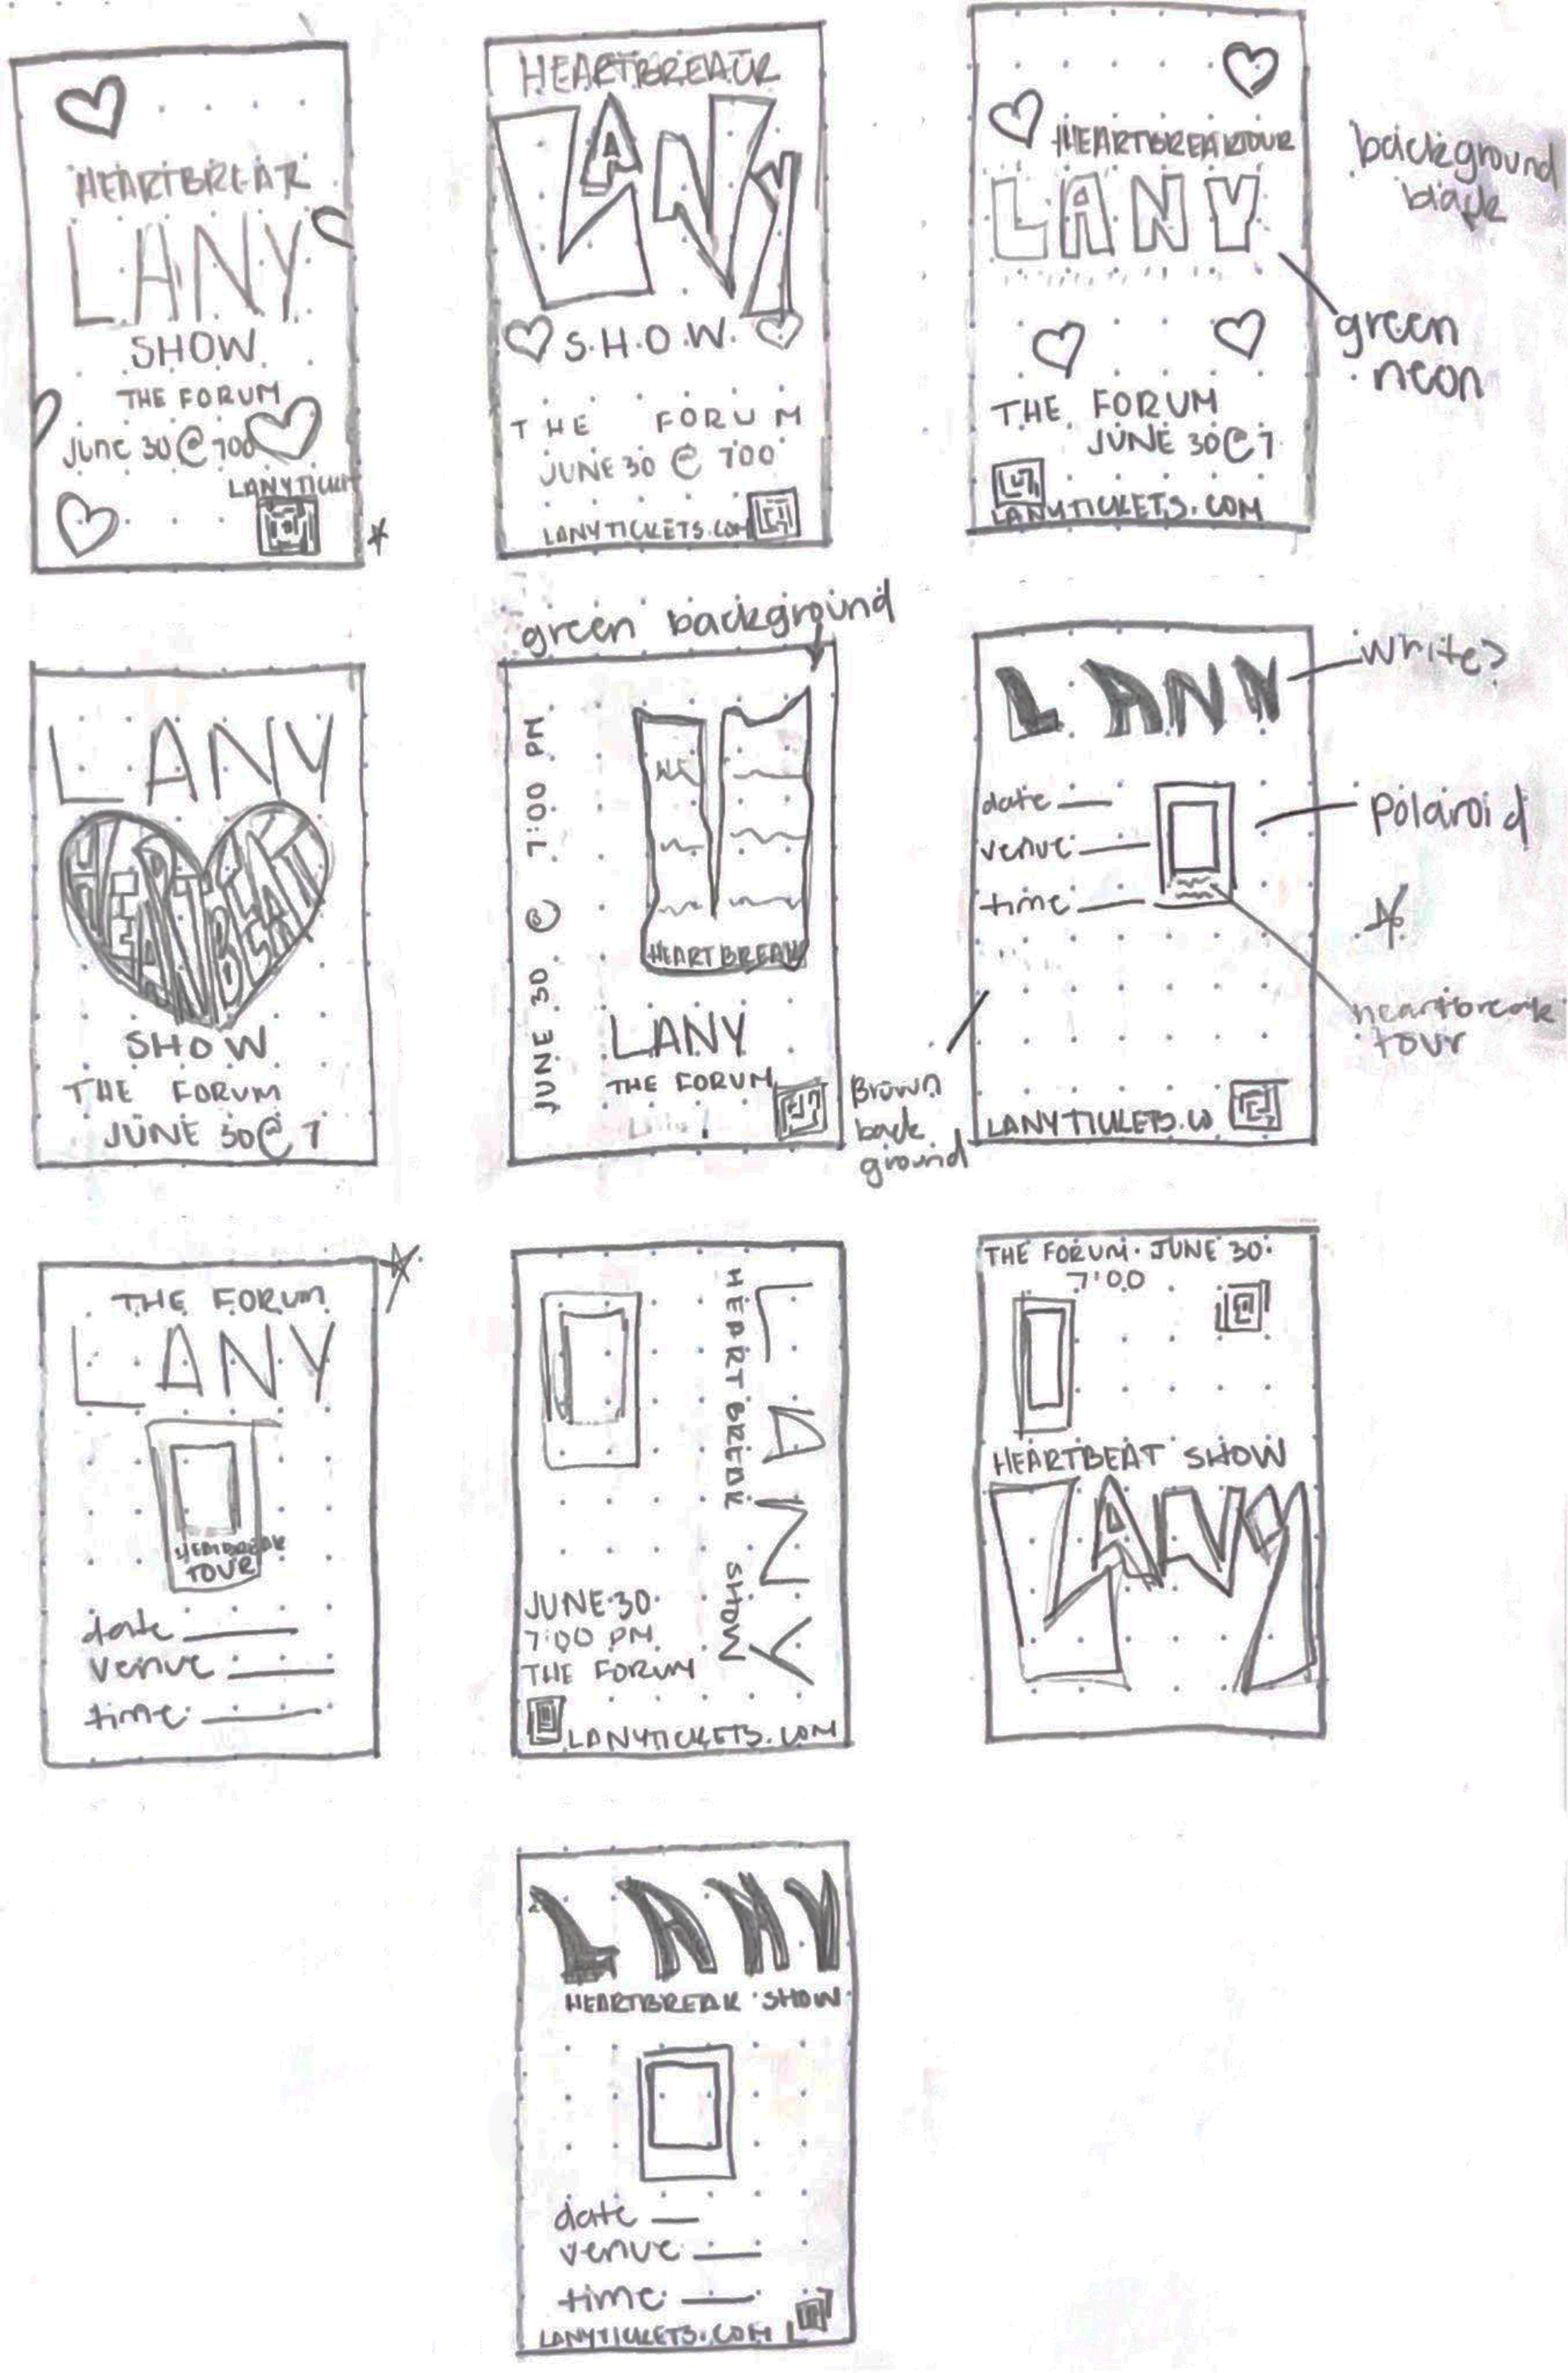 HEARTBREAK
LANY
SHOW
THE FORUM
June 30 @ 700
LANYTICKET
HEARTBREAUR
LANY
S.H.O.W.
THE FORUM
JUNE 30 @ 700
LANYTICKETS.COM
HEARTBREAKTOUR
LANY
THE FORUM
JUNE 30 @ 7
LANYTICKETS.COM
background
black
green
neon
LANY
HEARTBEAT
SHOW
THE FORUM
JUNE 30 @ 7
green background
JUNE 30 @ 7:00 PM
HEARTBREAK
LANY
THE FORUM
LANN
date
venue
time
LANYTICKETS.CO
white?
polaroid
heartbreak
tour
Brown
back
ground
THE FORUM
LANY
TOUR
date
venue
time
LANY
HEARTBREAK SHOW
JUNE 30
7:00 PM
THE FORUM
LANYTICKETS.COM
THE FORUM. JUNE 30.
7:00
HEARTBEAT SHOW
LANY
LANY
HEARTBREAK SHOW
date
venue
time
LANYTICKETS.COM